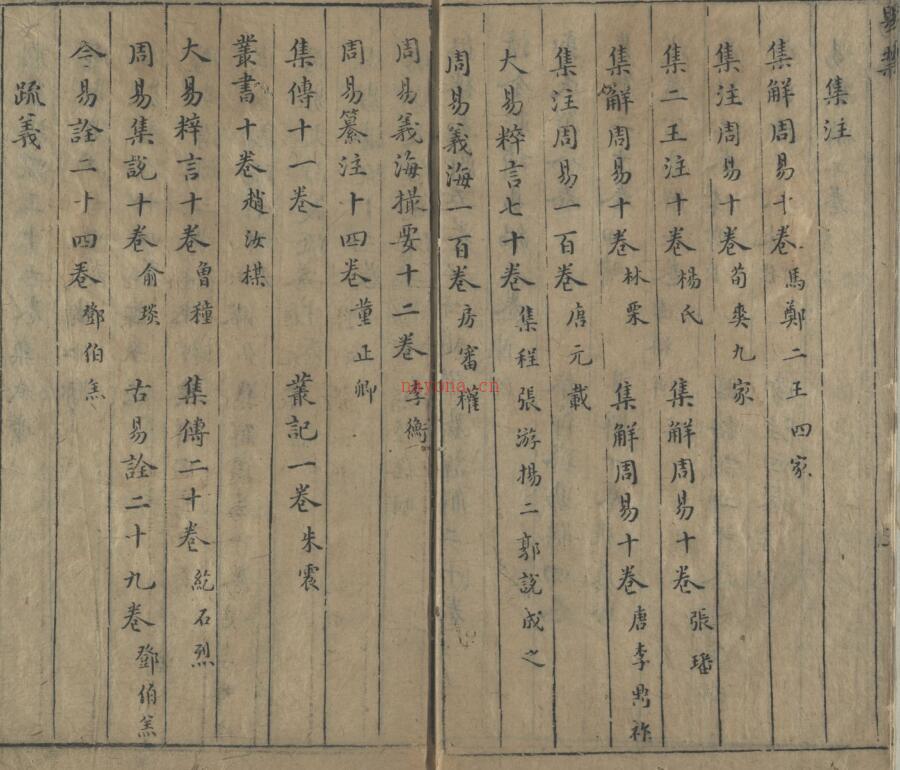 集注
集解周易十卷馬鄭二王四家
集注周易十卷荀爽九家
集二王注十卷楊氏 集解周易十卷張璠
集解周易十卷林栗 集解周易十卷唐李鼎祚
集注周易一百卷唐元載
大易粹言七十卷集程張游揚二郭說成之
周易義海一百卷房審權
周易義海撮要十二卷李衡
周易纂注十四卷董正卿
集傳十一卷 叢記一卷朱震
叢書十卷趙汝楳
大易粹言十卷曾種 集傳二十卷紇石烈
周易集說十卷俞琰 古易詮二十九卷鄧伯羔
今易詮二十四卷鄧伯羔
疏義
nayona.cn